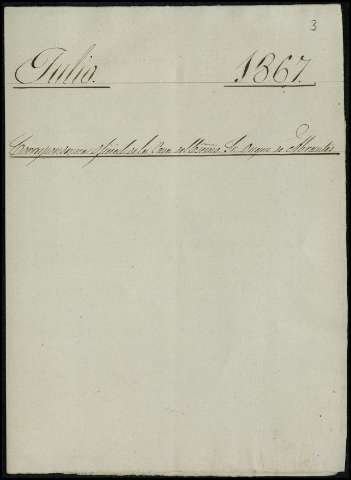 3
Julio. 1867.
Correspondencia oficial de la Casa del Excmo. Sr. Duque de Abrantes